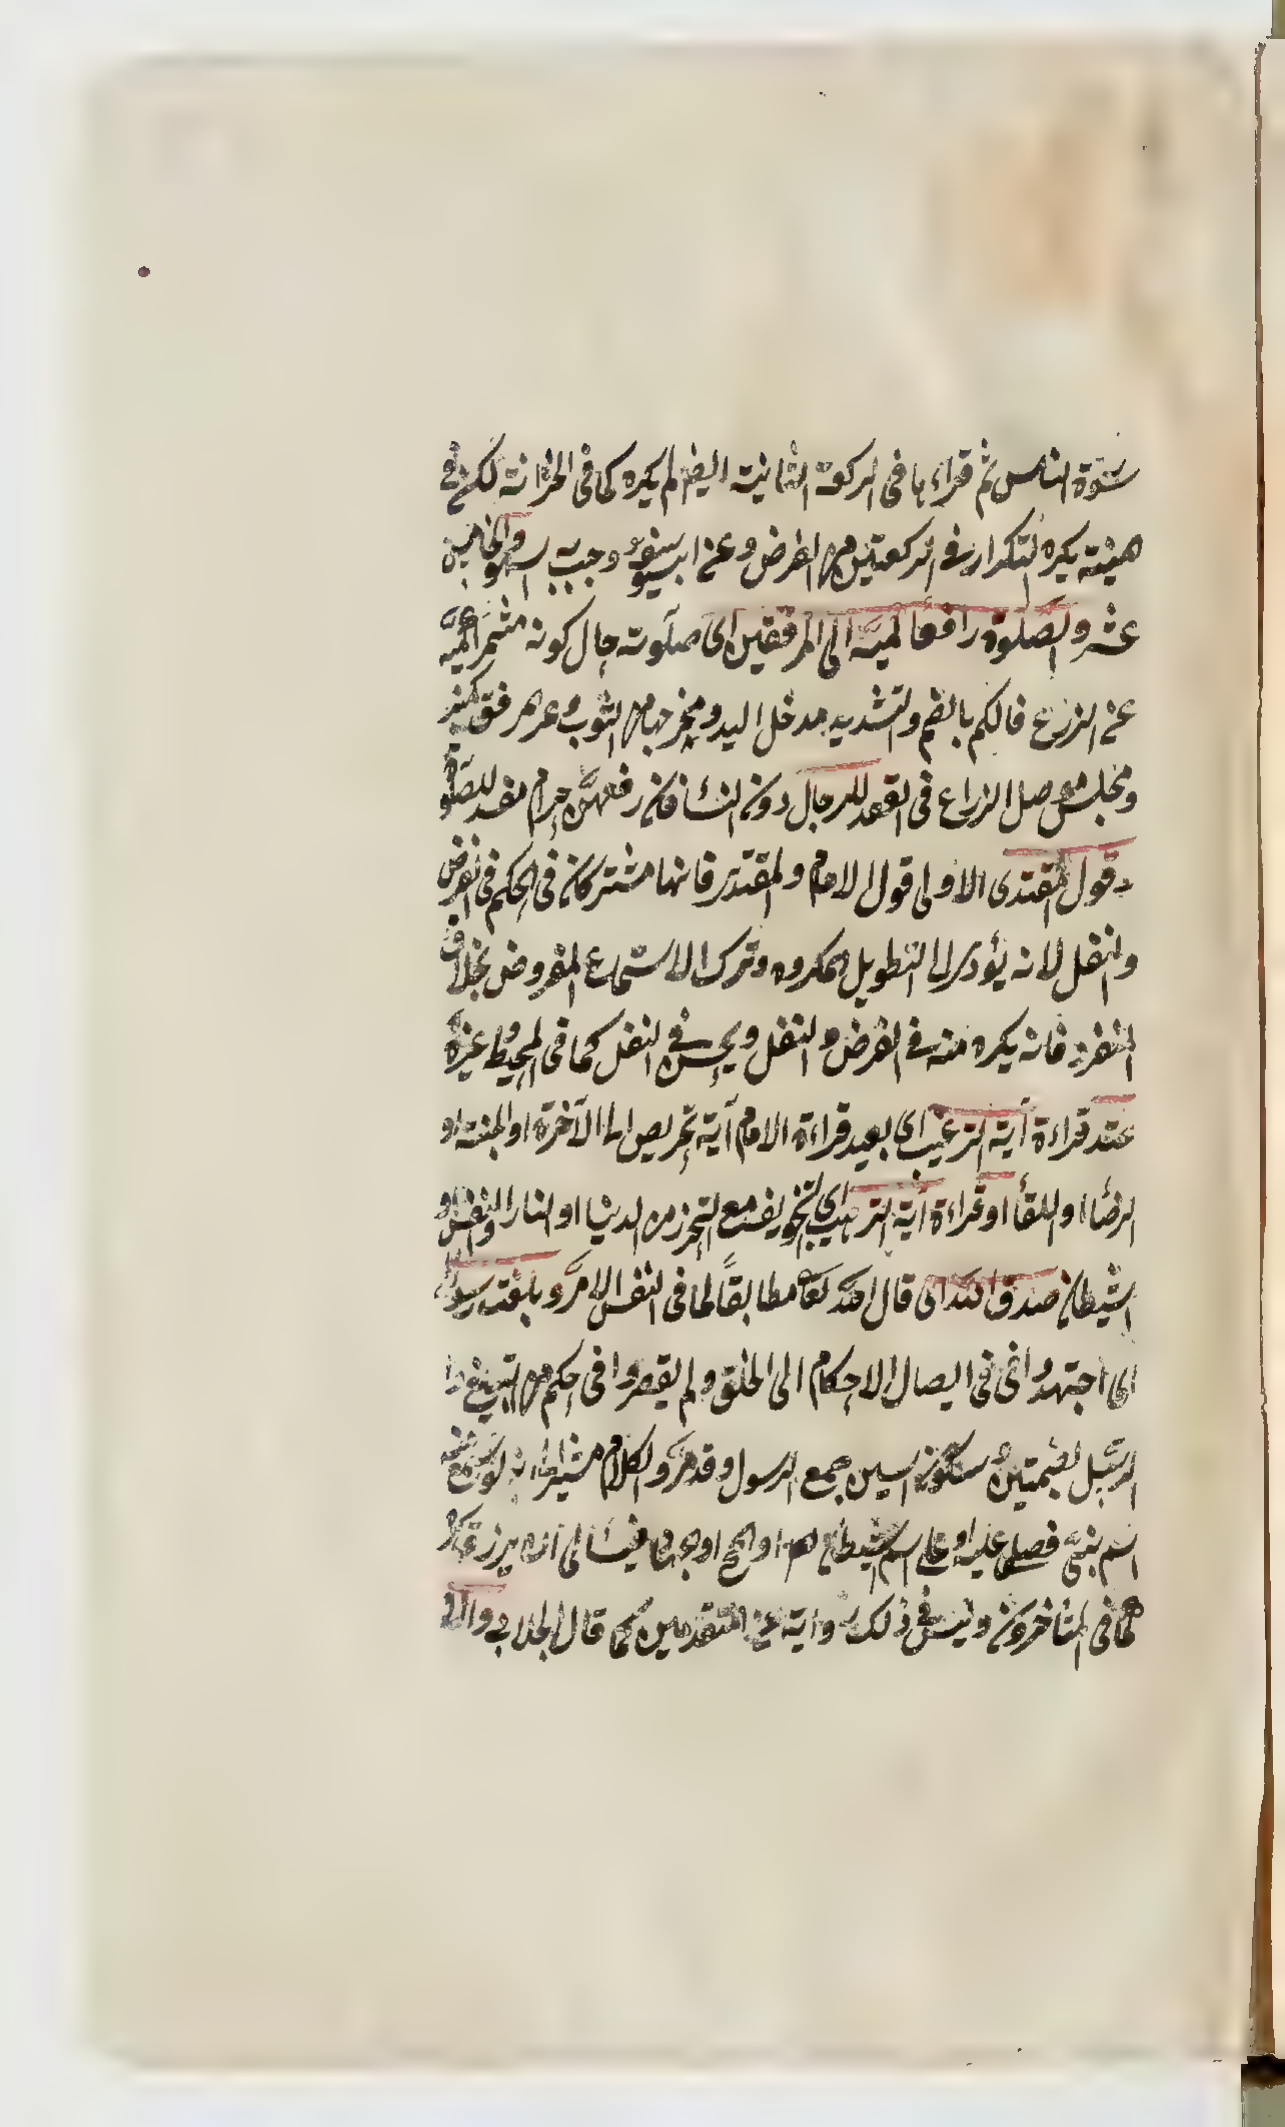 سورة الناس ثم قراءها في الركعة الثانية ايضا لم يكره كما في الخزانة لكن في
هيئته يكره التكرار في الركعتين من الفرض وعن ابي سفيو وجب سهو والخامس
عشر والصلوة رافعا كميه الى المرفقين اى صلوته حال كونه مشمرا كميه
عن الذراع فالكم بالضم والتشديد مدخل اليد ومخرجها من الثوب و مرفق كمنبر
ومجلس موصل الذراع في العقد للرجال دون النساء فان رفعهن حرام مفسد للصلوة
وقول المقتدى الاولى قول الامام والمقتدى فانهما مشتركان في الحكم في الفرض
والنفل لانه يؤدى الى التطويل المكروه وترك الاستماع المفروض بخلاف
المنفرد فانه يكره منه في الفرض والنفل ويحسن في النفل كما في المحيط وغيره
عند قراءة آية الترغيب اى بعيد قراءة الامام آية تحريص الى الآخرة او الجنة او
الرضاء او اللقاء او قراءة آية الترهيب اى التخويف مع التحرز من الدنيا او النار او النفس او
الشيطان صدق الله اى قال الله تعالى مطابقا لما في النفس الامر و بلغت رسوله
اى اجتهدوا في ايصال الاحكام الى الخلق ولم يقصروا في حكم من التبليغ
الرسل بضمتين وسكون السين جمع الرسول وقد مر والكلام مشير الى انه لو سمع منه
اسم نبي فصلى عليه او على اسم الشيطان
كما في المتأخرون وليس في ذلك رواية عن المتقدمين كما قال الجلابي والى